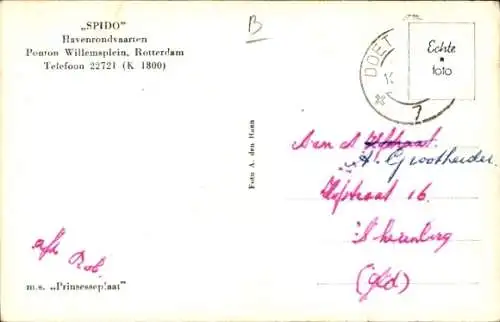 „SPIDO”
Havenrondvaarten
Ponton Willemsplein, Rotterdam
Telefoon 22721 (K 1800)
B
DOET
Echte
foto
7
Foto A. den Haan
Aan A Hofstraat
A. Grootheider
Hofstraat 16
's Heerenberg
(Gld)
afz Rob.
m.s. „Prinsesseplaat”